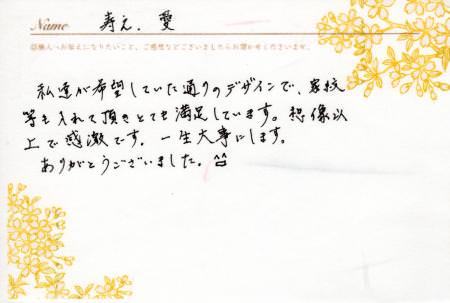 Name 寿え. 愛
◎職人へお伝えになりたいこと、ご感想などございましたらお聞かせくださいませ。
私達が希望していた通りのデザインで、家紋
等も入れて頂きとても満足しています。想像以
上で感激です。一生大事にします。
ありがとうございました。